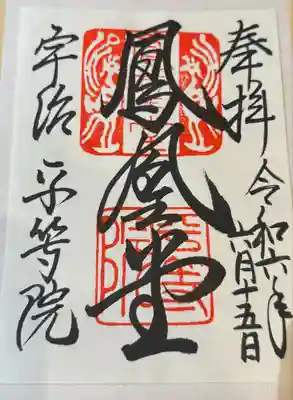 奉拝 令和六年
六月十五日
鳳凰堂
宇治 平等院